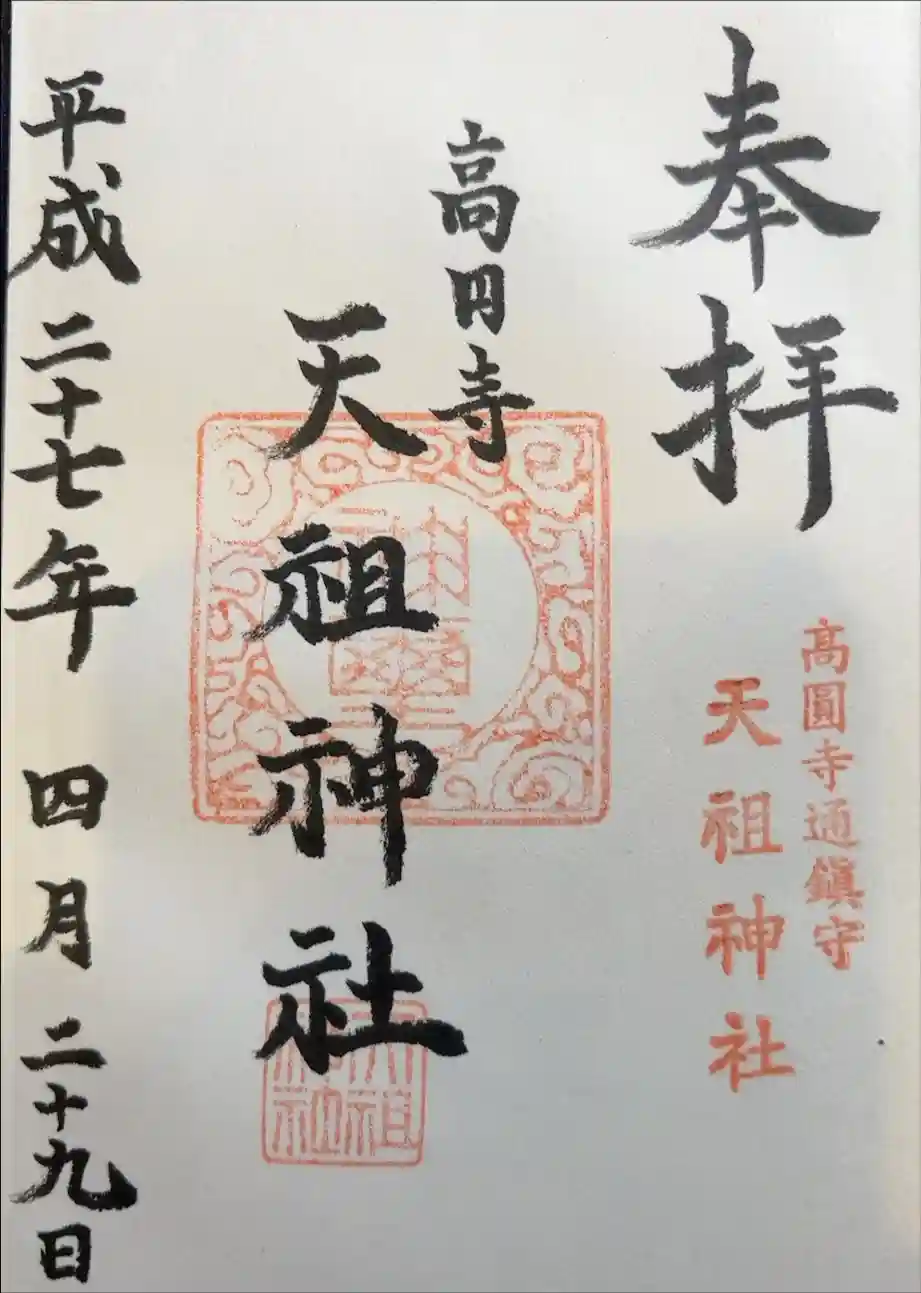 奉拝
高圓寺通鎮守
天祖神社
高円寺
天祖神社
天祖神社
平成二十七年 四月 二十九日